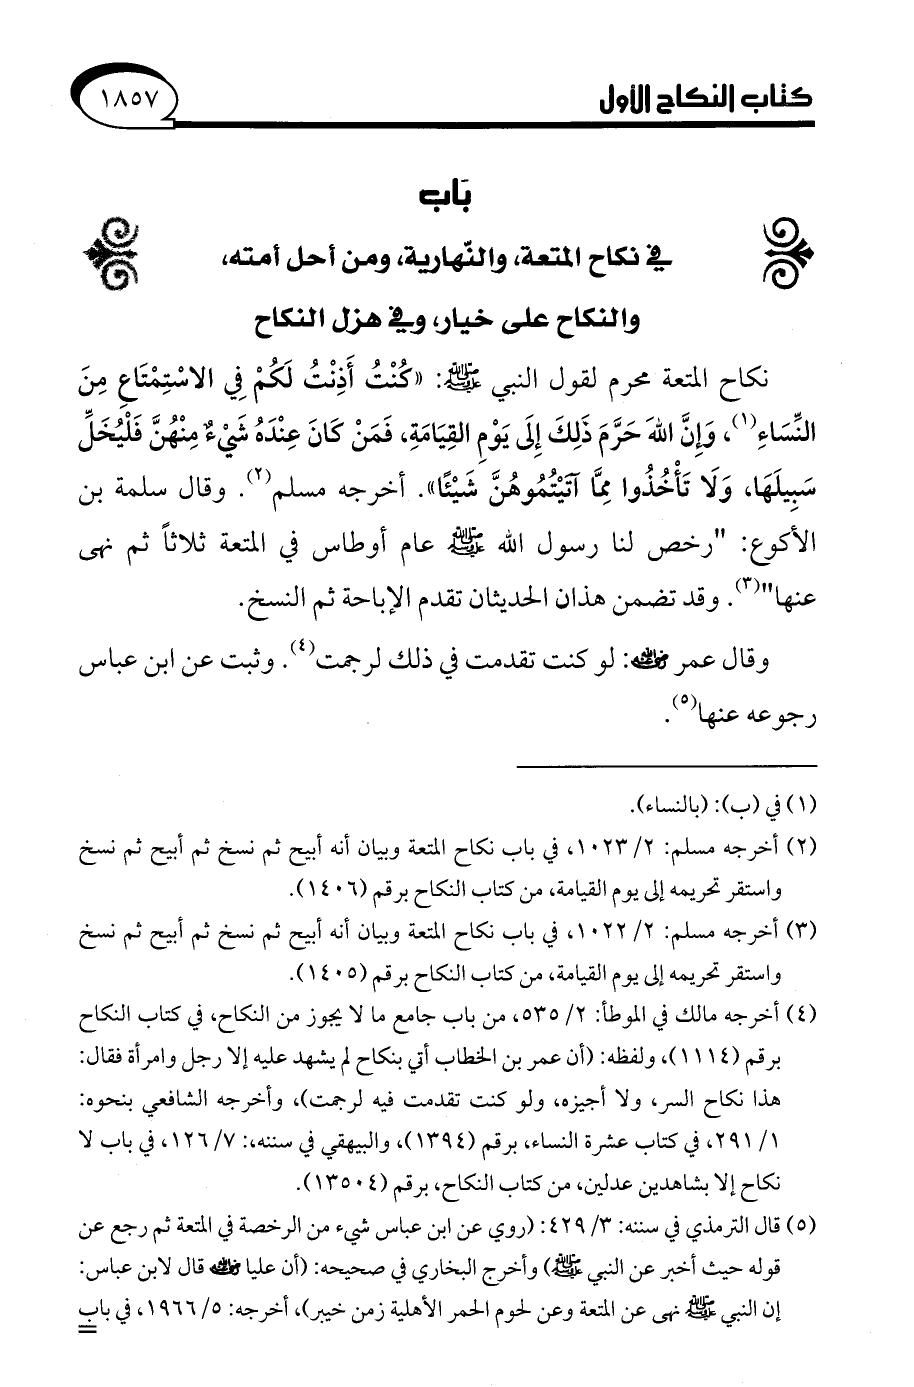 كتاب النكاح الأول
١٨٥٧
بَاب
في نكاح المتعة، والنّهارية، ومن أحل أمته،
والنكاح على خيار، وفي هزل النكاح
نكاح المتعة محرم لقول النبي ﷺ: «كُنْتُ أَذِنْتُ لَكُمْ فِي الاسْتِمْتَاعِ مِنَ
النِّسَاءِ(١)، وَإِنَّ اللهَ حَرَّمَ ذَلِكَ إِلَى يَوْمِ القِيَامَةِ، فَمَنْ كَانَ عِنْدَهُ شَيْءٌ مِنْهُنَّ فَلْيُخَلِّ
سَبِيلَهَا، وَلَا تَأْخُذُوا مِمَّا آتَيْتُمُوهُنَّ شَيْئًا». أخرجه مسلم(٢). وقال سلمة بن
الأكوع: "رخص لنا رسول الله ﷺ عام أوطاس في المتعة ثلاثاً ثم نهى
عنها"(٣). وقد تضمن هذان الحديثان تقدم الإباحة ثم النسخ.
وقال عمر رضي الله عنه: لو كنت تقدمت في ذلك لرجمت(٤). وثبت عن ابن عباس
رجوعه عنها(٥).
(١) في (ب): (بالنساء).
(٢) أخرجه مسلم: ٢/ ١٠٢٣، في باب نكاح المتعة وبيان أنه أبيح ثم نسخ ثم أبيح ثم نسخ
واستقر تحريمه إلى يوم القيامة، من كتاب النكاح برقم (١٤٠٦).
(٣) أخرجه مسلم: ٢/ ١٠٢٢، في باب نكاح المتعة وبيان أنه أبيح ثم نسخ ثم أبيح ثم نسخ
واستقر تحريمه إلى يوم القيامة، من كتاب النكاح برقم (١٤٠٥).
(٤) أخرجه مالك في الموطأ: ٢/ ٥٣٥، من باب جامع ما لا يجوز من النكاح، في كتاب النكاح
برقم (١١١٤)، ولفظه: (أن عمر بن الخطاب أتي بنكاح لم يشهد عليه إلا رجل وامرأة فقال:
هذا نكاح السر، ولا أجيزه، ولو كنت تقدمت فيه لرجمت)، وأخرجه الشافعي بنحوه:
١/ ٢٩١، في كتاب عشرة النساء، برقم (١٣٩٤)، والبيهقي في سننه،: ٧/ ١٢٦، في باب لا
نكاح إلا بشاهدين عدلين، من كتاب النكاح، برقم (١٣٥٠٤).
(٥) قال الترمذي في سننه: ٣/ ٤٢٩: (روي عن ابن عباس شيء من الرخصة في المتعة ثم رجع عن
قوله حيث أخبر عن النبي ﷺ) وأخرج البخاري في صحيحه: (أن عليا رضي الله عنه قال لابن عباس:
إن النبي ﷺ نهى عن المتعة وعن لحوم الحمر الأهلية زمن خيبر)، أخرجه: ٥/ ١٩٦٦، في باب
=